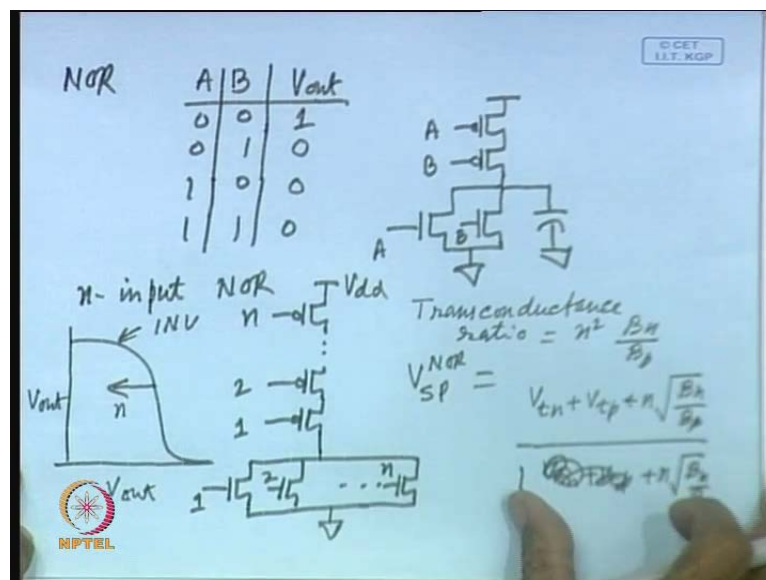 © CET
I.I.T. KGP
NOR
A B Vout
0 0 1
0 1 0
1 0 0
1 1 0
A
B
A
B
n-input NOR
INV
Vout
n
Vout
Vdd
n
2
1
1 2 ... n
Transconductance
ratio = n² Bn/Bp
V_SP^NOR =
Vtn + Vtp + n√(Bn/Bp)
1 + n√(Bn/
NPTEL